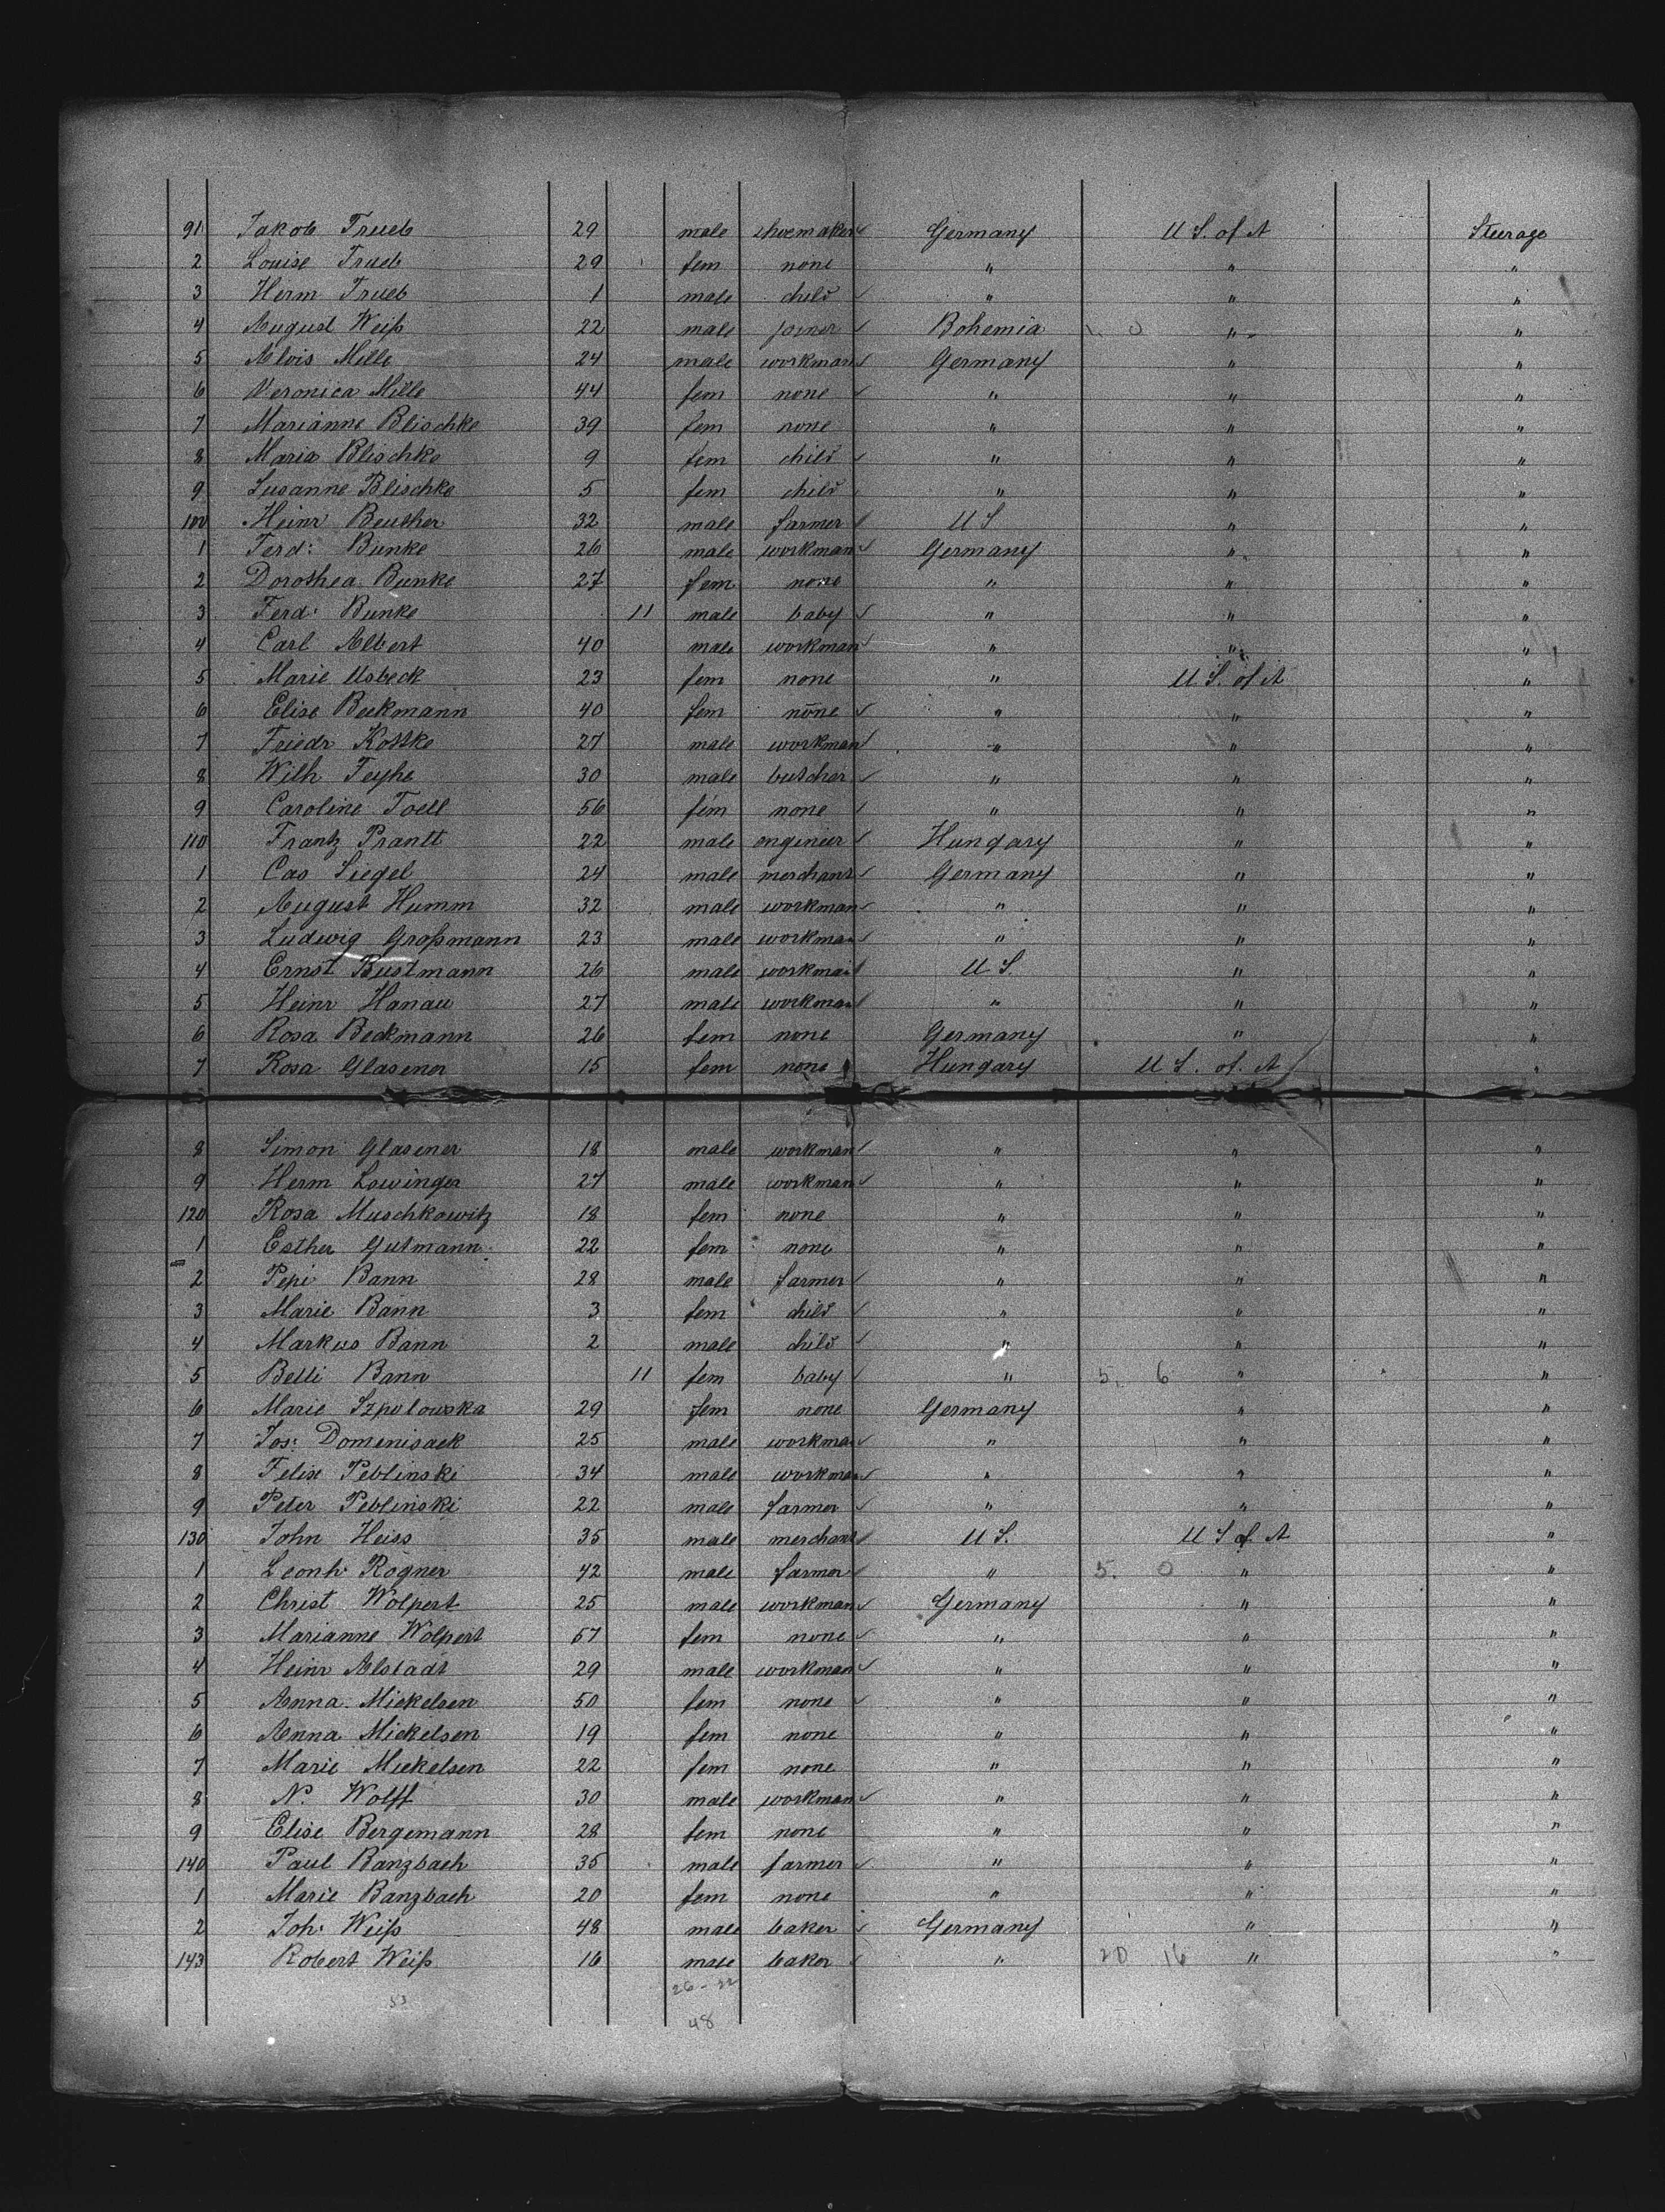 91 Jakob Trueb 29 male shoemaker Germany U S. of A Steerage
2 Louise Trueb 29 fem none " " "
3 Herm Trueb 1 male child " " "
4 August Weiß 22 male joiner Bohemia 0 " "
5 Alois Mille 24 male workman Germany " "
6 Veronica Mille 44 fem none " " "
7 Marianne Blischke 39 fem none " " "
8 Maria Blischke 9 fem child " " "
9 Susanne Blischke 5 fem child " " "
100 Heinr Beucher 32 male farmer U S " "
1 Ferd: Bunke 26 male workman Germany " "
2 Dorothea Bunke 27 fem none " " "
3 Ferd: Bunke 11 male baby " " "
4 Carl Albert 40 male workman " " "
5 Marie Usbeck 23 fem none " U S. of A "
6 Elise Beekmann 40 fem none " " "
7 Friedr Kottke 27 male workman " " "
8 Wilh Feyhe 30 male butcher " " "
9 Caroline Toell 56 fem none " " "
110 Frantz Prantt 22 male engineer Hungary " "
1 Cas Siegel 24 male merchant Germany " "
2 August Humm 32 male workman " " "
3 Ludwig Großmann 23 male workman " " "
4 Ernst Bustmann 26 male workman U S. " "
5 Heinr Hanau 27 male workman " " "
6 Rosa Beckmann 26 fem none Germany " "
7 Rosa Glasener 15 fem none Hungary U S. of. A "
8 Simon Glasener 18 male workman " " "
9 Herm Lowinger 27 male workman " " "
120 Rosa Muschkowitz 18 fem none " " "
1 Esther Gutmann 22 fem none " " "
2 Pepi Bann 28 male farmer " " "
3 Marie Bann 3 fem child " " "
4 Markus Bann 2 male child " " "
5 Betti Bann 11 fem baby " 5. 6 " "
6 Marie Szpolowska 29 fem none Germany " "
7 Jos: Domenisaek 25 male workman " " "
8 Felix Peblinski 34 male workman " " "
9 Peter Peblinski 22 male farmer " " "
130 John Heiss 35 male merchant U S. U S of A "
1 Leonh: Rogner 42 male farmer " 5. 0 " "
2 Christ Wolpert 25 male workman Germany " "
3 Marianne Wolpert 57 fem none " " "
4 Heinr Alstadt 29 male workman " " "
5 Anna Mickelsen 50 fem none " " "
6 Anna Mickelsen 19 fem none " " "
7 Marie Mickelsen 22 fem none " " "
8 N. Wolff 30 male workman " " "
9 Elise Bergemann 28 fem none " " "
140 Paul Banzbach 35 male farmer " " "
1 Marie Banzbach 20 fem none " " "
2 Joh: Weiß 48 male baker Germany " "
143 Robert Weiß 16 male baker " 20 16 " "
53 26-22
48